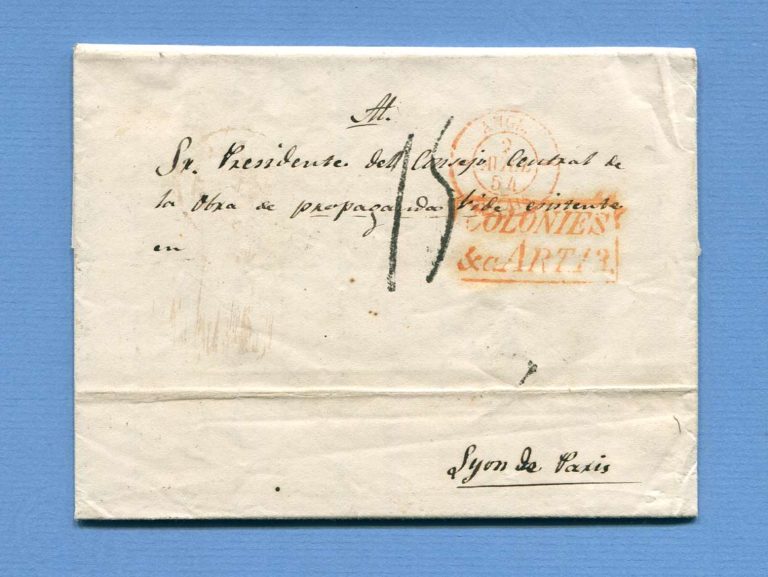 Al.
Sr. Presidente del Consejo Central de
la Obra de propaganda Fide existente
en
15
ANGL.
2
54
COLONIES
&c. ART. 13.
Lyon de Paris